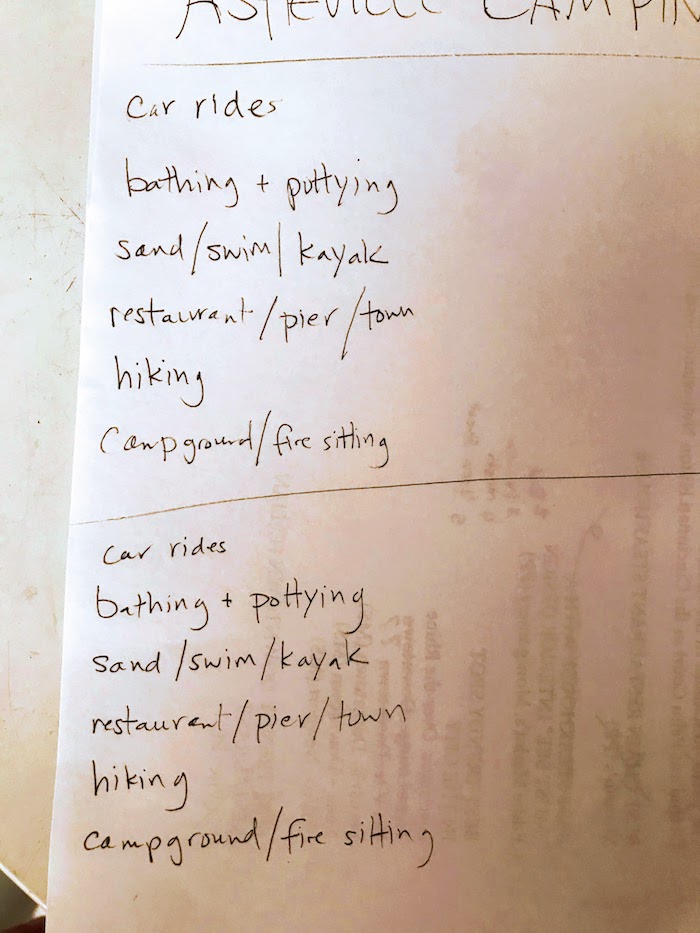 ASHEVILLE CAMPIN
car rides
bathing + pottying
sand/swim/kayak
restaurant/pier/town
hiking
campground/fire sitting
car rides
bathing + pottying
sand/swim/kayak
restaurant/pier/town
hiking
campground/fire sitting